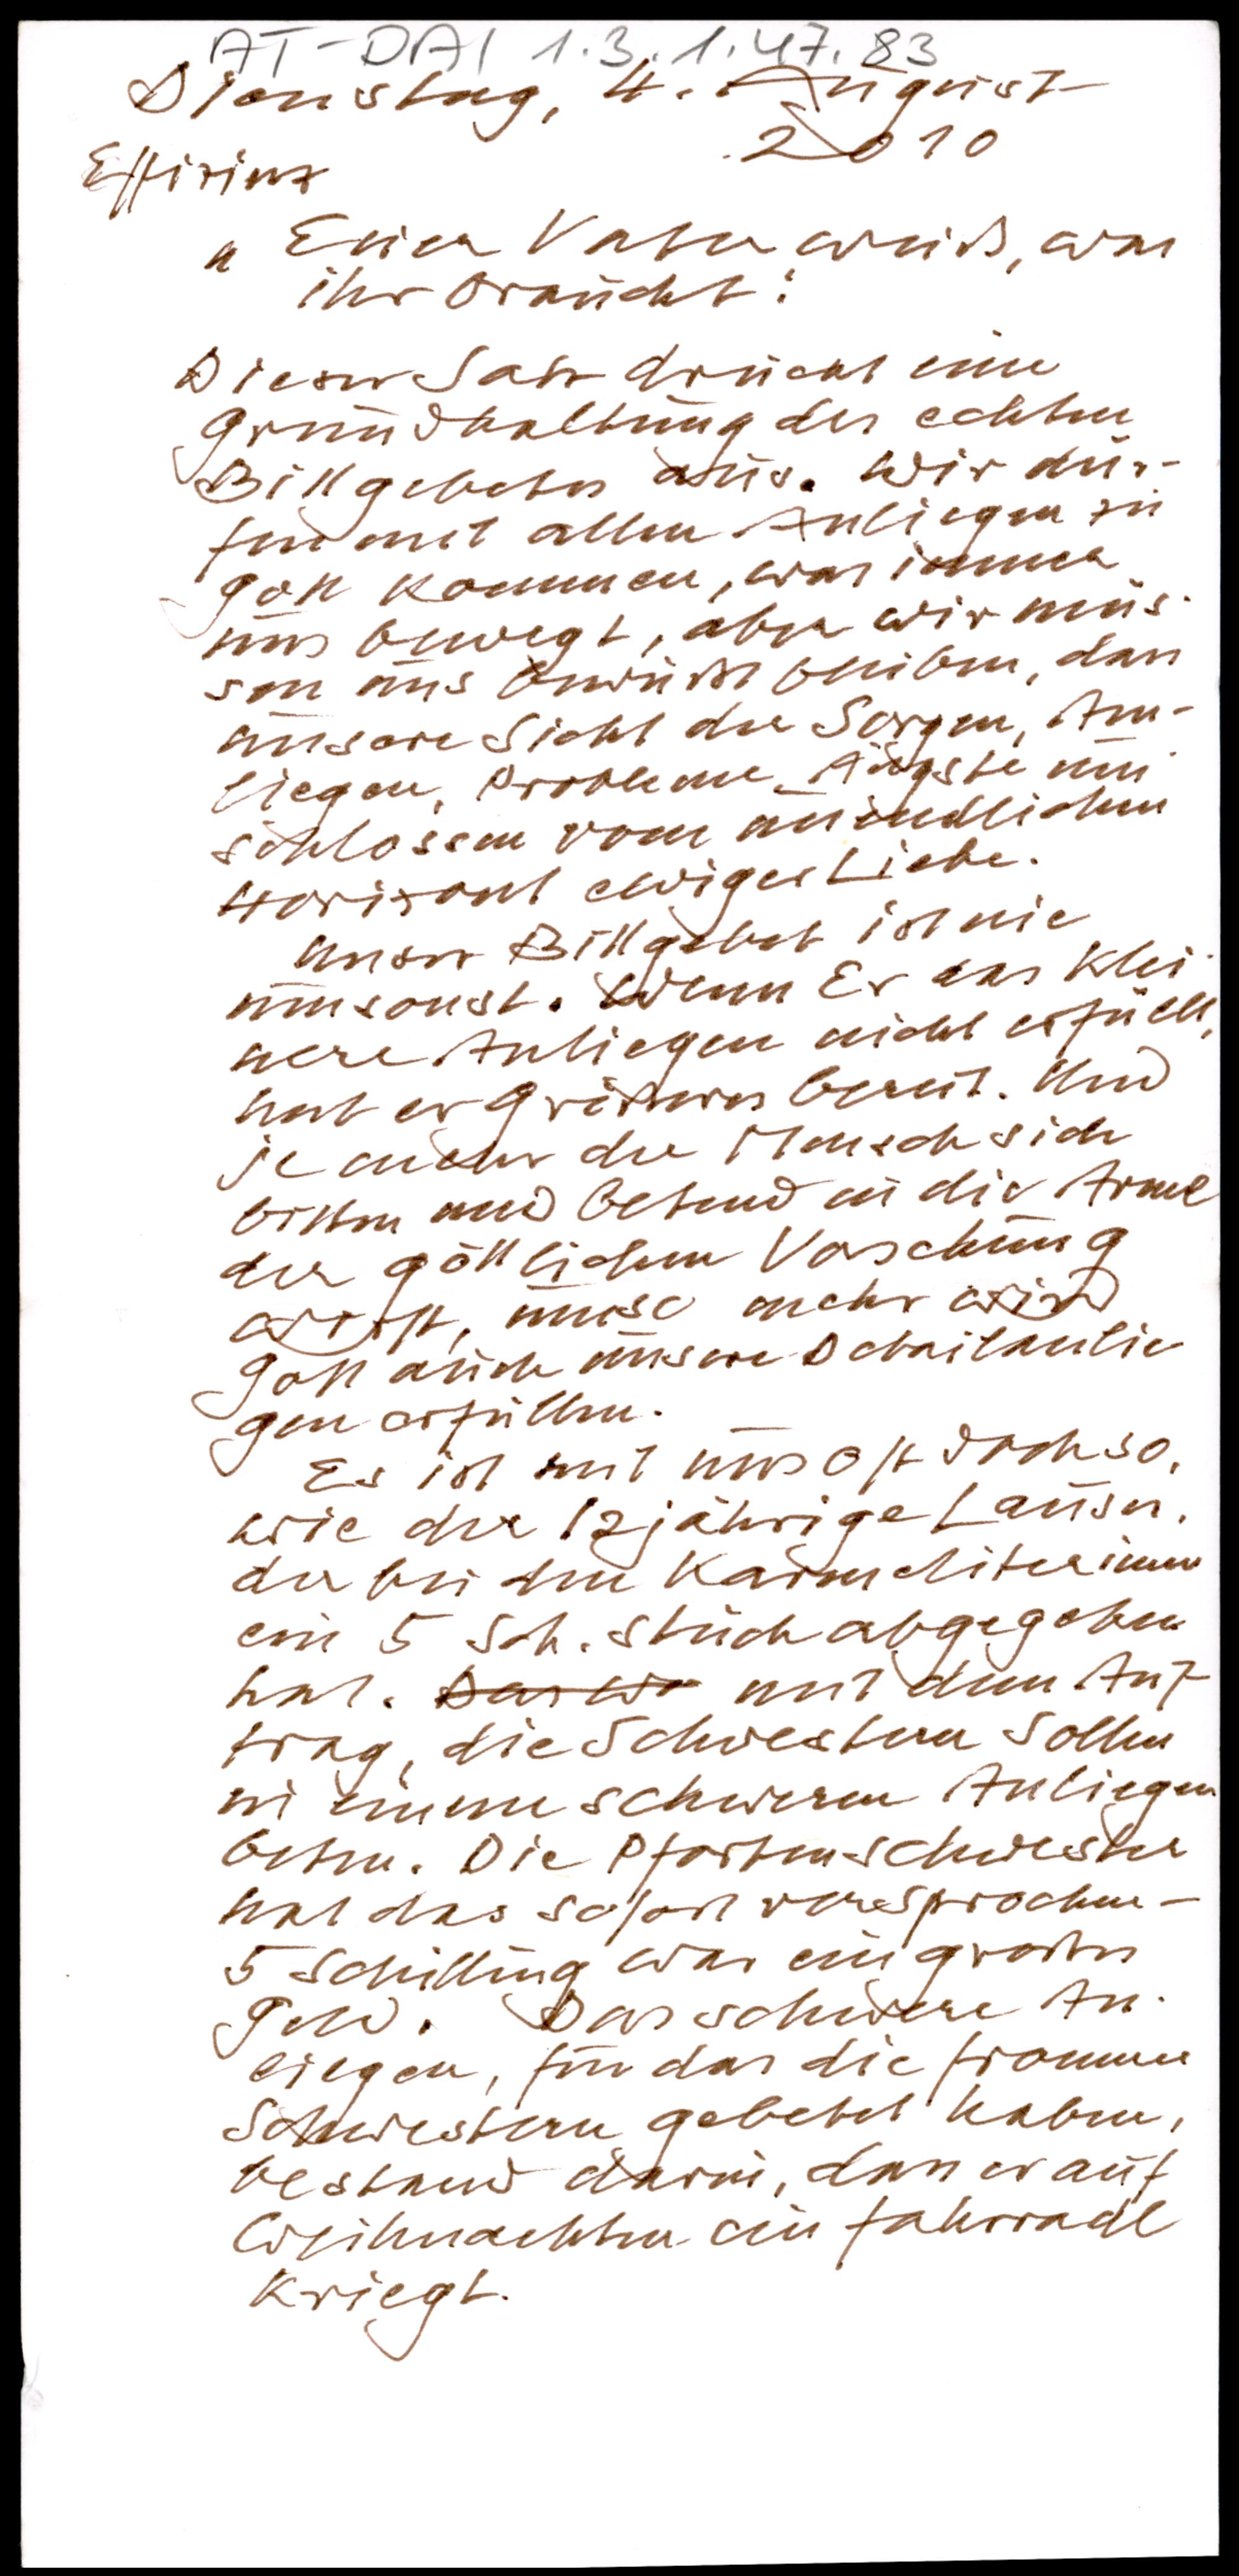 AT-DAI 1.3.1.47.83
Dienstag, 4. August
2010
Effizinz
" Euer Vater weiß, was
ihr braucht"
Dieser Satz drückt eine
Grundhaltung des echten
Bittgebetes aus. Wir dür-
fen mit allen Anliegen zu
Gott kommen, was immer
uns bewegt, aber wir müs-
sen uns bewußt bleiben, dass
unsere Sicht der Sorgen, An-
liegen, Probleme, Ängste um-
schlossen vom unendlichen
Horizont ewiger Liebe.
Unser Bittgebet ist nie
umsonst. Wenn Er das klei-
nere Anliegen nicht erfüllt,
hat er Größeres bereit. Und
je mehr der Mensch sich
bitten und betend in die Arme
der göttlichen Vorsehung
wirft, umso mehr wird
Gott auch unsere Detailanlie
gen erfüllen.
Es ist mit uns oft doch so,
wie der 12jährige Lauser,
der bei den Karmeliterinnen
ein 5 Sch. Stück abgegeben
hat. Das wa mit dem Auf
trag, die Schwestern sollen
in einem schweren Anliegen
beten. Die Pfortenschwester
hat das sofort versprochen -
5 Schilling war ein großes
Geld. Das schwere An-
liegen, für das die frommen
Schwestern gebetet haben,
bestand darin, dass er auf
Weihnachten ein Fahrradl
kriegt.